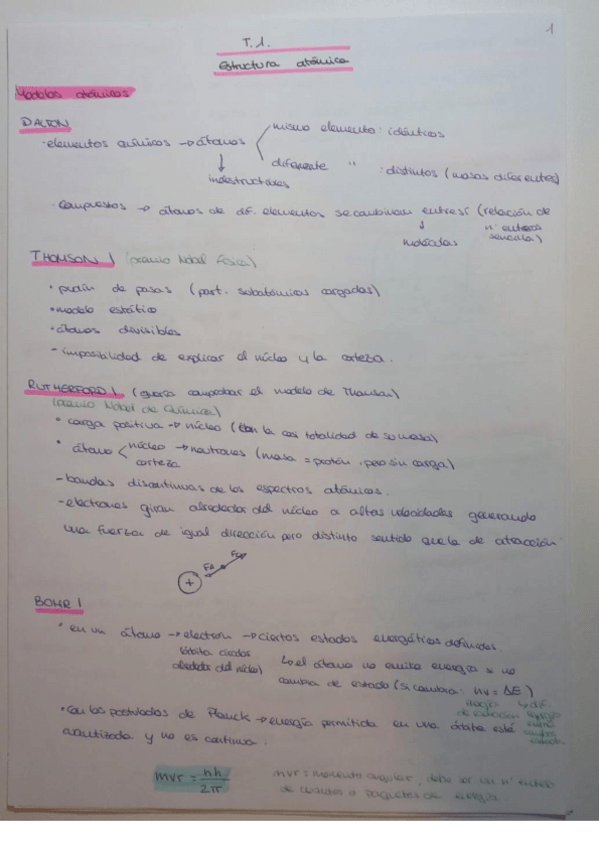 1
T.1.
Estructura atómica
Modelos atómicos
DALTON
· elementos químicos → átomos
mismo elemento: idénticos
diferente " : distintos (masas diferentes)
indestructibles
· Compuestos → átomos de dif. elementos se combinan entre sí (relación de
nº enteros
sencilla)
moléculas
THOMSON (premio Nobel Física)
· pudin de pasas (part. subatómicas cargadas)
· modelo estático
· átomos divisibles
- imposibilidad de explicar el núcleo y la corteza.
RUTHERFORD (quería comprobar el modelo de Thomson)
(premio Nobel de Química)
· carga positiva → núcleo (con la casi totalidad de su masa)
· átomo núcleo → neutrones (masa = protón, pero sin carga)
corteza
- bandas discontinuas de los espectros atómicos.
- electrones giran alrededor del núcleo a altas velocidades generando
una fuerza de igual dirección pero distinto sentido que la de atracción
+
BOHR
· en un átomo → electron → ciertos estados energéticos definidos.
(órbita
alrededor del núcleo)
↳ el átomo no emite energía si no
cambia de estado (si cambia: hν = ΔE)
↳ dif.
de radiación
· Con los postulados de Planck → energía permitida en una órbita está
cuantizada y no es continua.
mvr = nh/2π
mvr = momento angular, debe ser un nº entero
de cuantos o paquetes de energía